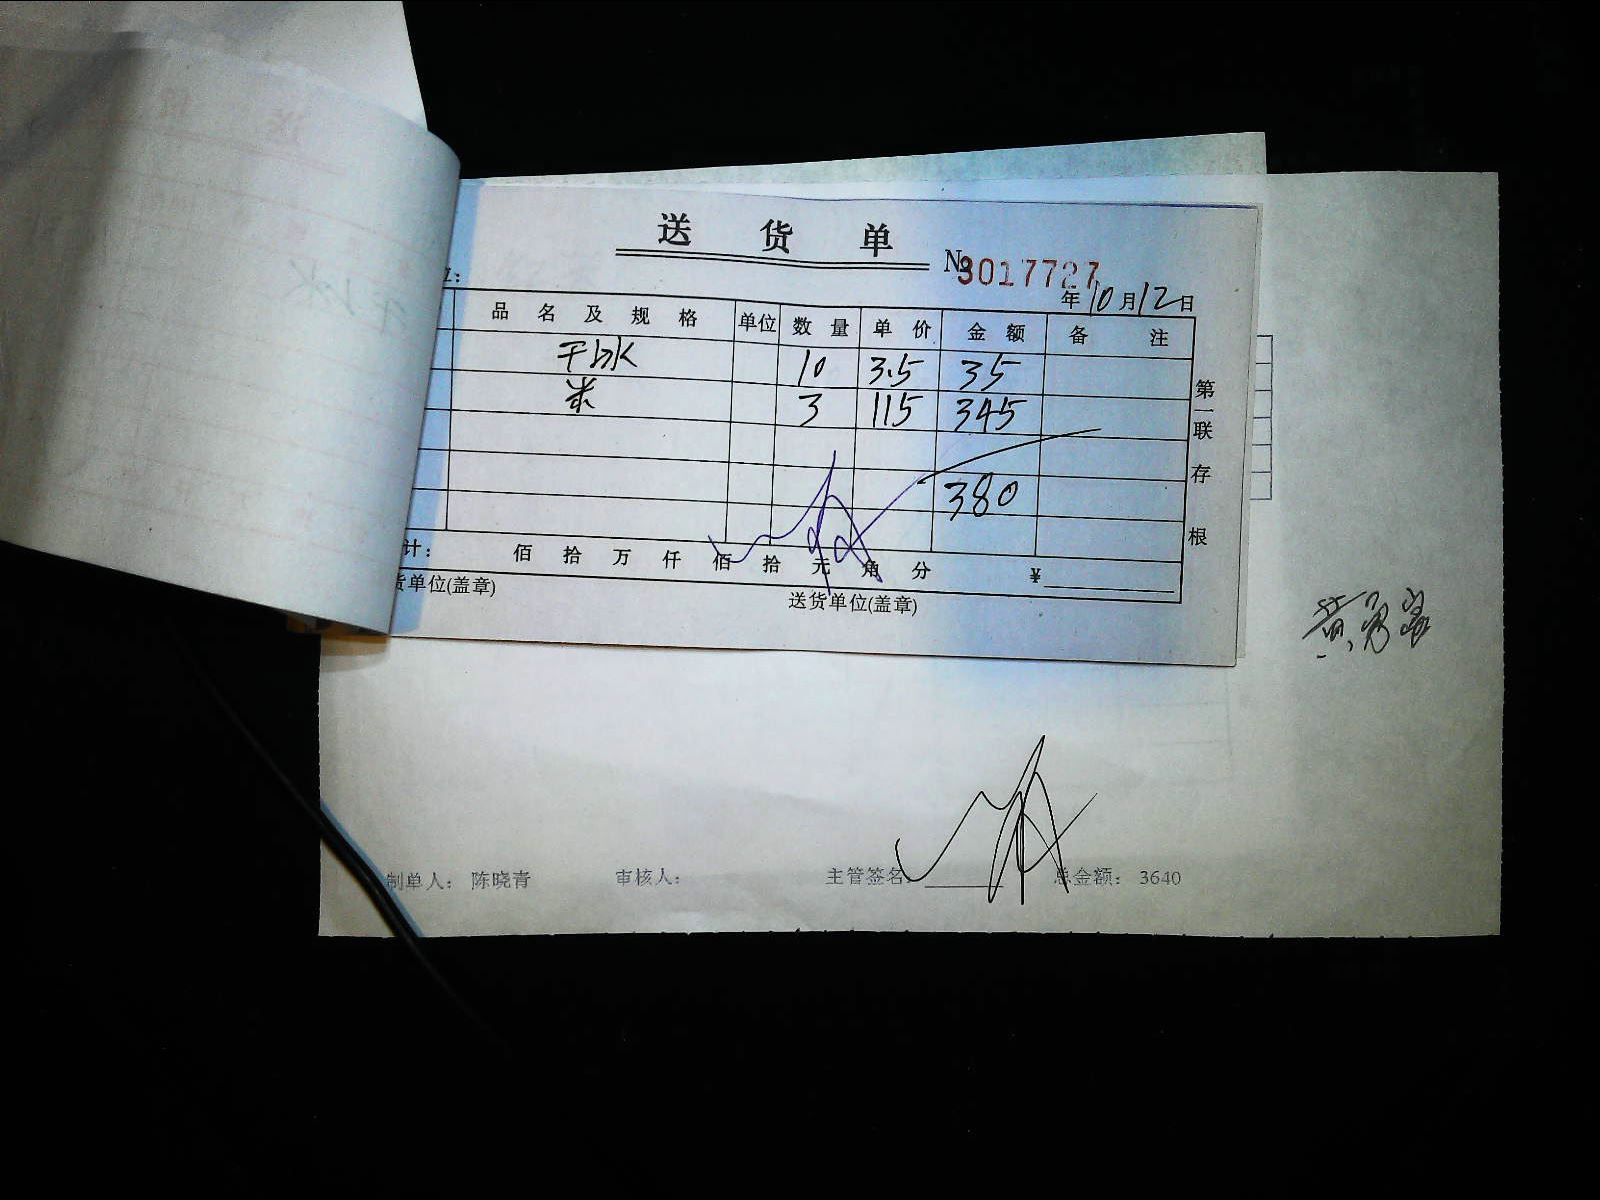 送 货 单
№3017727
年10月12日
品 名 及 规 格 单位 数 量 单 价 金 额 备 注
干冰 10 3.5 35
米 3 115 345
380
第一联 存根
计： 佰 拾 万 仟 佰 拾 元 角 分 ¥
货单位(盖章) 送货单位(盖章)
制单人： 陈晓青 审核人： 主管签名： 总金额： 3640